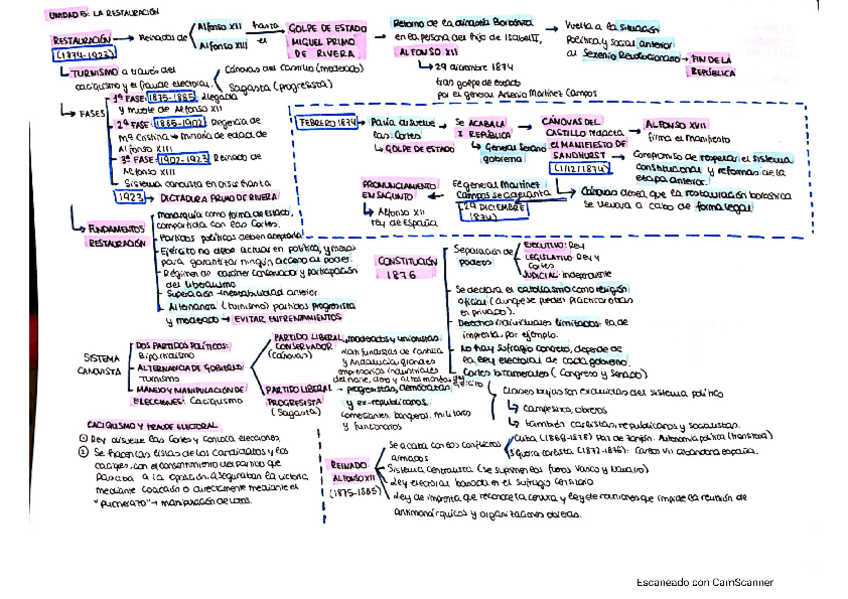 UNIDAD 5: LA RESTAURACIÓN
RESTAURACIÓN → Reinados de Alfonso XII Alfonso XIII hasta el GOLPE DE ESTADO MIGUEL PRIMO DE RIVERA.
(1874-1923)
Retorno de la dinastía Borbónica en la persona del hijo de Isabel II, ALFONSO XII
→ 29 diciembre 1874
tras golpe de estado
por el general Arsenio Martínez Campos
→ Vuelta a la situación
Política y social anterior
al Sexenio Revolucionario → FIN DE LA REPÚBLICA
TURNISMO a través del
caciquismo y el fraude electoral.
Cánovas del Castillo (moderado)
Sagasta (progresista)
FASES
1ª FASE: 1875-1885: llegada
y muerte de Alfonso XII
2ª FASE: 1885-1902: Regencia de
Mª Cristina → minoría de edad de
Alfonso XIII
3ª FASE: 1902-1923: Reinado de
Alfonso XIII
Sistema canovista en crisis hasta
1923 → DICTADURA PRIMO DE RIVERA
FEBRERO 1874 → Pavía disuelve
las Cortes
GOLPE DE ESTADO
→ Se ACABA LA
I REPÚBLICA
General Serrano
gobierna
→ CÁNOVAS DEL
CASTILLO redacta
el MANIFIESTO DE
SANDHURST
(1/12/1874)
→ ALFONSO XVII
firma el Manifiesto
Compromiso de recuperar el sistema
constitucional y reformas de la
etapa anterior.
Cánovas desea que la restauración borbónica
se lleve a cabo de forma legal
El general Martínez
Campos se adelanta
29 DICIEMBRE
1874
PRONUNCIAMIENTO
EN SAGUNTO
→ Alfonso XII
rey de España
FUNDAMENTOS
RESTAURACIÓN
Monarquía como forma de estado,
compartida con las Cortes.
Partidos políticos deben aceptarla
Ejército no debe actuar en política,
para garantizar ningún acceso al poder.
Régimen de carácter conservador y participación
del liberalismo
Superación inestabilidad anterior.
Alternancia (turnismo) partidos progresista
y moderado → EVITAR ENFRENTAMIENTOS
CONSTITUCIÓN
1876
Separación de
poderes
EJECUTIVO: Rey
LEGISLATIVO: Rey y
Cortes
JUDICIAL: independiente
Se declara el catolicismo como religión
oficial (aunque se puedan practicar otras
en privado).
Derechos individuales limitados: la de
imprenta, por ejemplo.
No hay sufragio concreto, depende de
la ley electoral de cada gobierno.
Cortes bicamerales (Congreso y Senado)
SISTEMA
CANOVISTA
DOS PARTIDOS POLÍTICOS:
Bipartidismo
ALTERNANCIA DE GOBIERNO:
Turnismo
MANEJO Y MANIPULACIÓN DE
ELECCIONES: Caciquismo
PARTIDO LIBERAL
CONSERVADOR
(Cánovas)
moderados y unionistas.
Latifundistas de Castilla
y Andalucía, grandes
empresarios industriales
del norte, clero y altos mandos del ejército
PARTIDO LIBERAL
PROGRESISTA
(Sagasta)
→ progresistas, demócratas
y ex-republicanos.
comerciantes, banqueros, militares
y funcionarios
Clases bajas son excluidas del sistema político
→ campesinos, obreros
→ también carlistas, republicanos y socialistas.
CACIQUISMO Y FRAUDE ELECTORAL
① Rey disuelve las Cortes y convoca elecciones.
② Se hacen las listas de los candidatos y los
caciques, con el consentimiento del partido que
pasaba a la oposición, aseguraban la victoria
mediante coacción o directamente mediante el
"pucherazo" → manipulación de votos.
REINADO
ALFONSO XII
(1875-1885)
Se acaba con los conflictos
armados
Cuba (1868-1878) Paz de Zanjón. Autonomía política (transitoria)
3 guerra carlista (1872-1876): Carlos VII abandona España.
Sistema centralista (se suprimen los fueros Vasco y Navarro)
Ley electoral basada en el sufragio censitario
Ley de imprenta que reconoce la censura y ley de reuniones que impide la reunión de
antimonárquicos y organizaciones obreras.
Escaneado con CamScanner